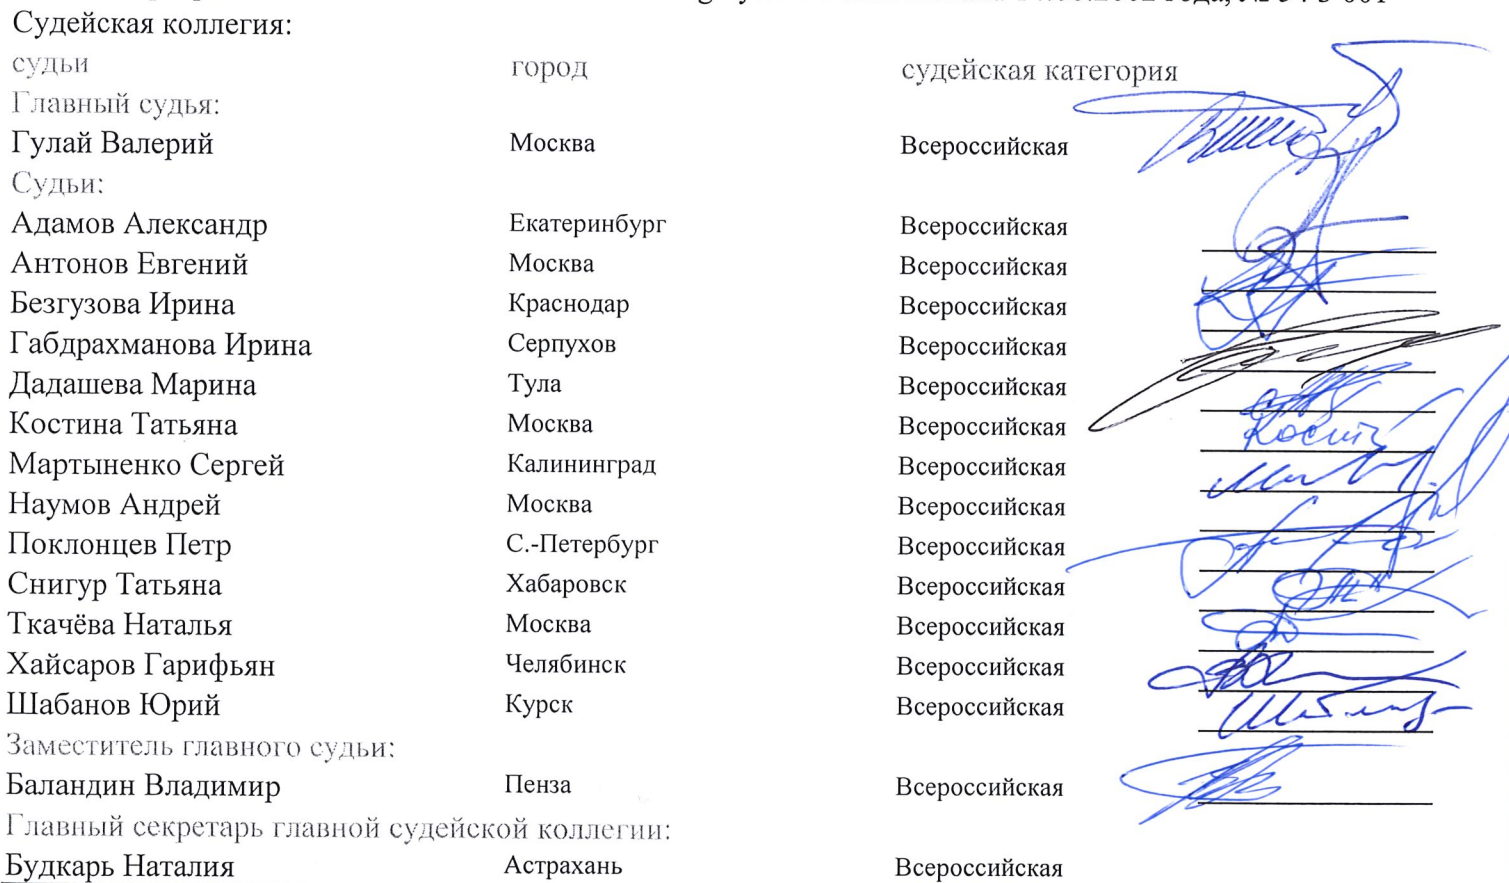 Судейская коллегия:
судьи город судейская категория
Главный судья:
Гулай Валерий Москва Всероссийская
Судьи:
Адамов Александр Екатеринбург Всероссийская
Антонов Евгений Москва Всероссийская
Безгузова Ирина Краснодар Всероссийская
Габдрахманова Ирина Серпухов Всероссийская
Дадашева Марина Тула Всероссийская
Костина Татьяна Москва Всероссийская
Мартыненко Сергей Калининград Всероссийская
Наумов Андрей Москва Всероссийская
Поклонцев Петр С.-Петербург Всероссийская
Снигур Татьяна Хабаровск Всероссийская
Ткачёва Наталья Москва Всероссийская
Хайсаров Гарифьян Челябинск Всероссийская
Шабанов Юрий Курск Всероссийская
Заместитель главного судьи:
Баландин Владимир Пенза Всероссийская
Главный секретарь главной судейской коллегии:
Будкарь Наталия Астрахань Всероссийская